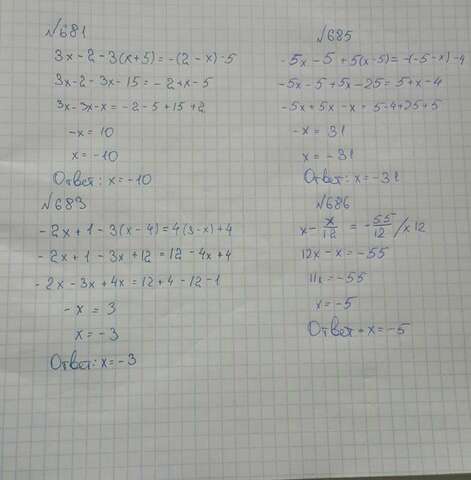 №681
3x-2-3(x+5)=-(2-x)-5
3x-2-3x-15=-2+x-5
3x-3x-x=-2-5+15+2
-x=10
x=-10
Ответ: x=-10
№683
-2x+1-3(x-4)=4(3-x)+4
-2x+1-3x+12=12-4x+4
-2x-3x+4x=12+4-12-1
-x=3
x=-3
Ответ: x=-3
№685
-5x-5+5(x-5)=-(-5-x)-4
-5x-5+5x-25=5+x-4
-5x+5x-x=5-4+25+5
-x=31
x=-31
Ответ: x=-31
№686
x-x/12=-55/12 /x12
12x-x=-55
11x=-55
x=-5
Ответ: x=-5